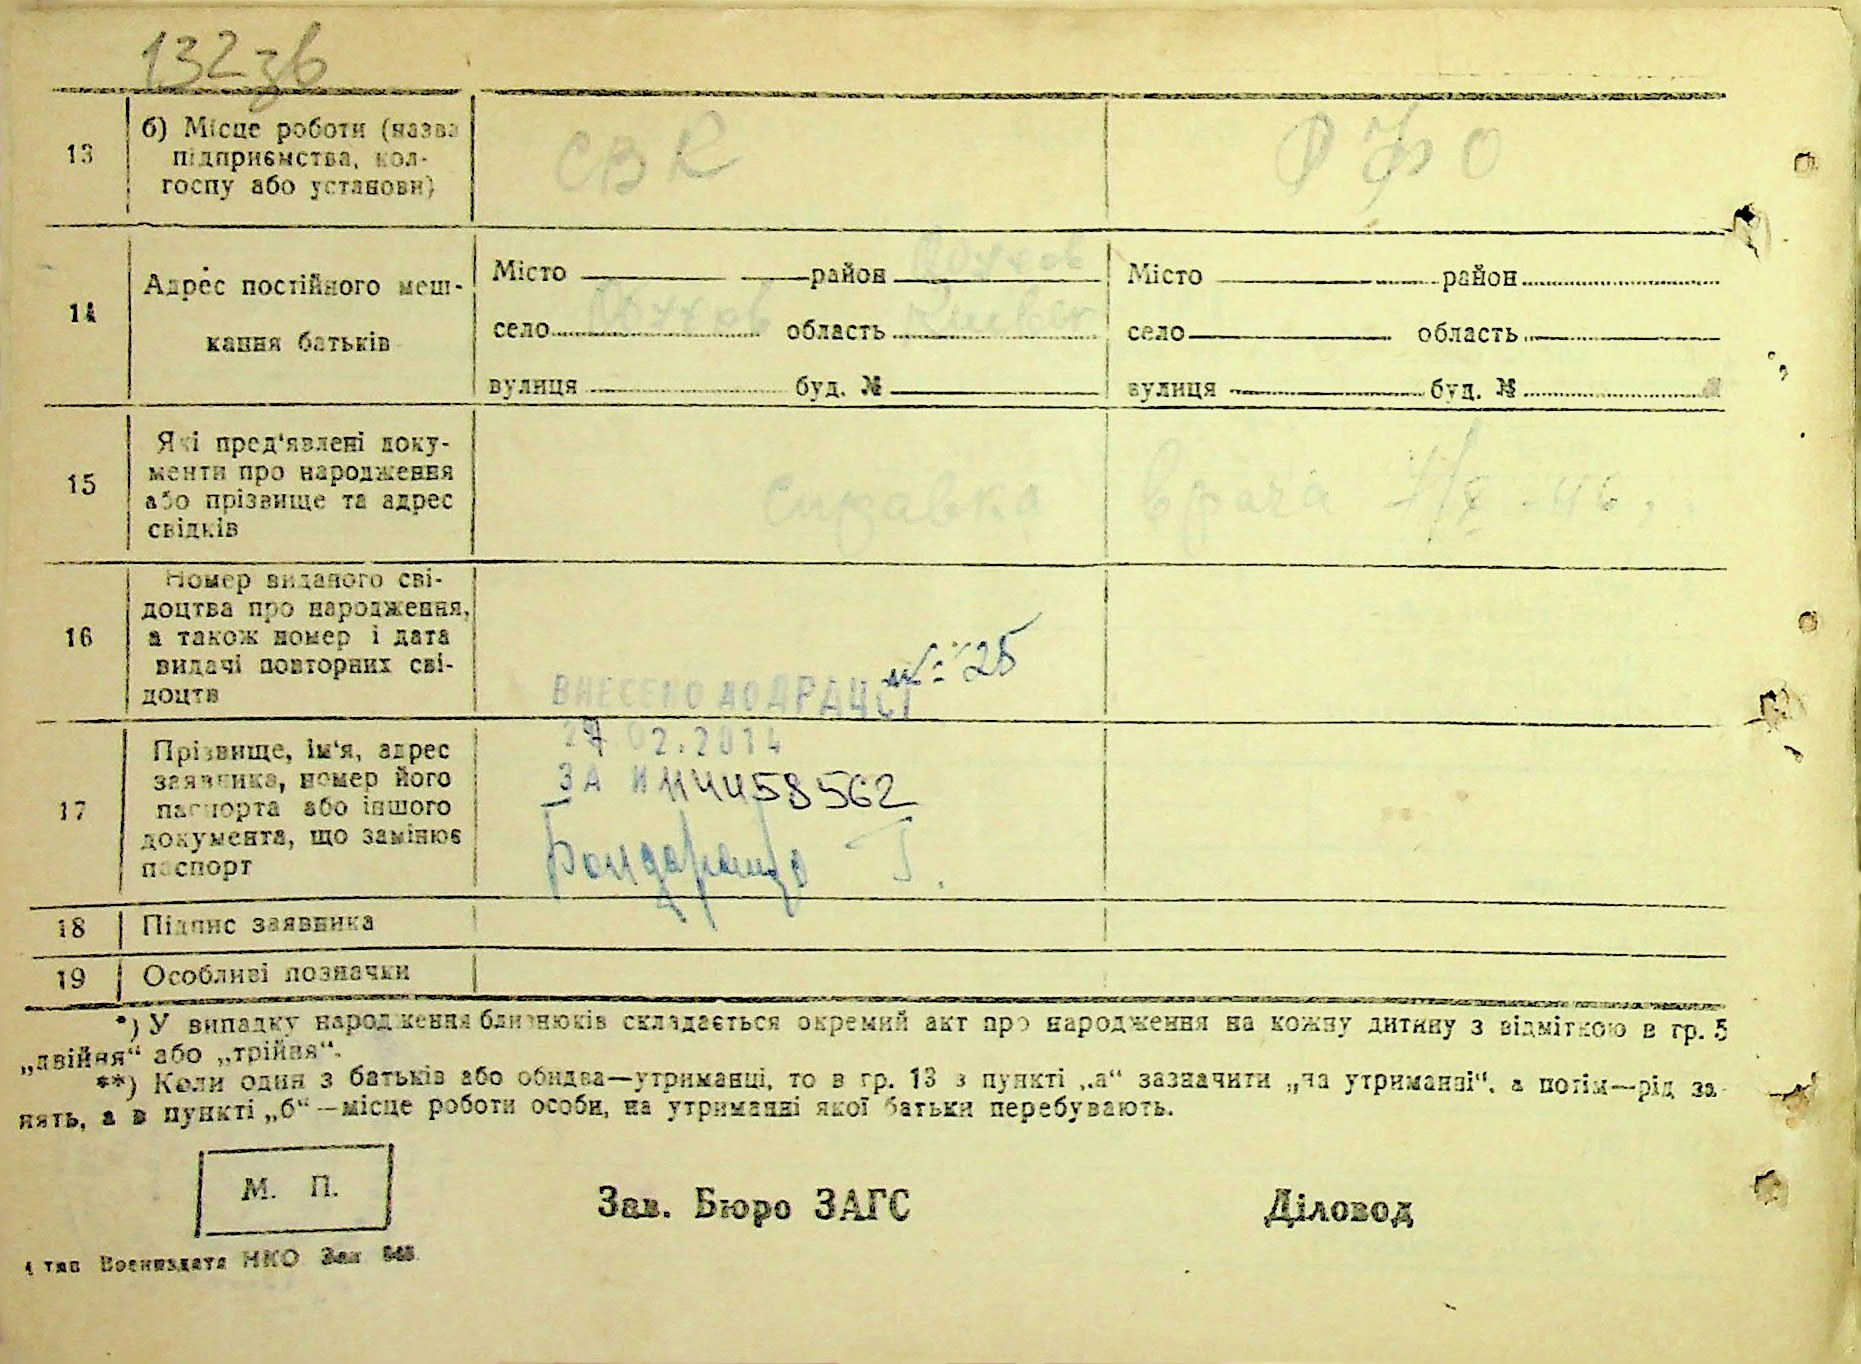 132 зв
13
б) Місце роботи (назва
підприємства, кол-
госпу або установи)
СВК
РФО
14
Адрес постійного меш-
кання батьків
Місто район
село область
вулиця буд. №
Місто район
село область
вулиця буд. №
15
Які пред'явлені доку-
менти про народження
або прізвище та адрес
свідків
справка врача
16
Номер виданого сві-
доцтва про народження,
а також номер і дата
видачі повторних сві-
доцтв
№ 25
ВНЕСЕНО ДО ДРАЦСГ
27.02.2014
ЗА № 11445 8562
17
Прізвище, ім'я, адрес
заявника, номер його
паспорта або іншого
документа, що замінює
паспорт
18
Підпис заявника
19
Особливі позначки
*) У випадку народження близнюків складається окремий акт про народження на кожну дитину з відміткою в гр. 5
„двійня“ або „трійня“.
**) Коли один з батьків або обидва—утриманці, то в гр. 13 з пункті „а“ зазначити „на утриманні“, а потім—рід за-
нять, а в пункті „б“—місце роботи особи, на утриманні якої батьки перебувають.
М. П.
Зав. Бюро ЗАГС
Діловод
1 тип Воениздата НКО Зак